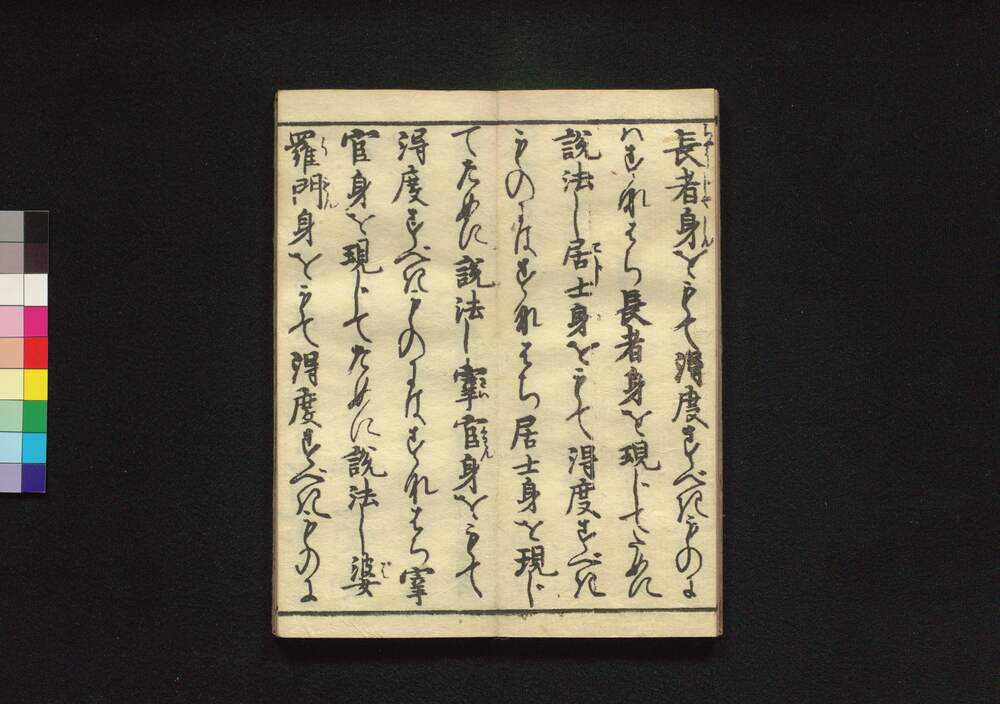 長者身をもて得度すべきものに
ハすなはち長者身を現じてために
説法し居士身をもて得度すべき
ものにはすなはち居士身を現じ
てために説法し宰官身をもて
得度すべきものにはすなはち宰
官身を現じてために説法し婆
羅門身をもて得度すべきものに